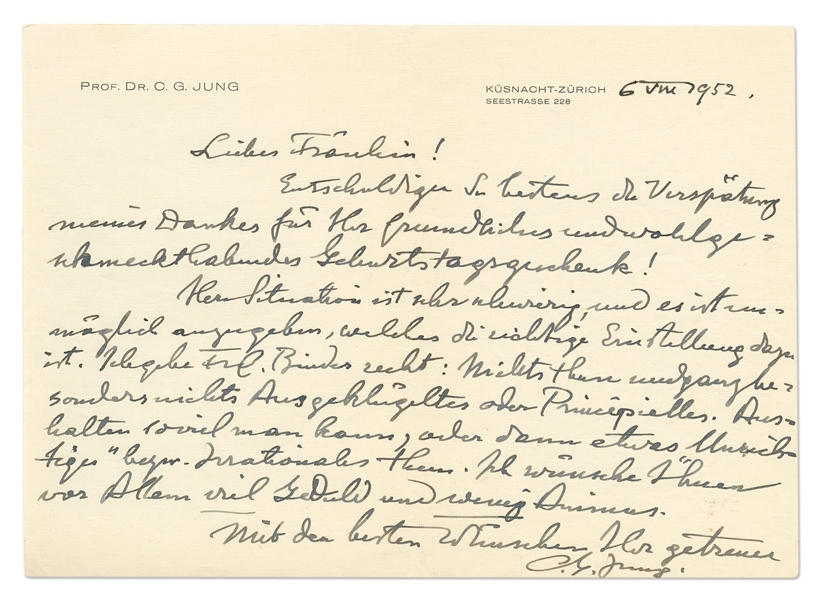 PROF. DR. C. G. JUNG
KÜSNACHT-ZÜRICH 6 VIII 1952.
SEESTRASSE 228
Liebes Fräulein!
Entschuldigen Sie bestens die Verspätung
meines Dankes für Ihr gründliches und wohlge=
schmeckthabendes Geburtstagsgeschenk!
Ihre Situation ist sehr schwierig, und es ist un=
möglich anzugeben, welches die richtige Einstellung dazu
ist. Ich gebe Frl. Recht: Nichts thun und ganz be=
sonders nichts Ausgeklügeltes oder Principielles. Aus=
halten soviel man kann, oder dann etwas "Unrich=
tiges" bezw. Irrationales thun. Ich wünsche Ihnen
vor Allem viel Geduld und wenig Animus.
Mit den besten Wünschen Ihr getreuer
C. G. Jung.